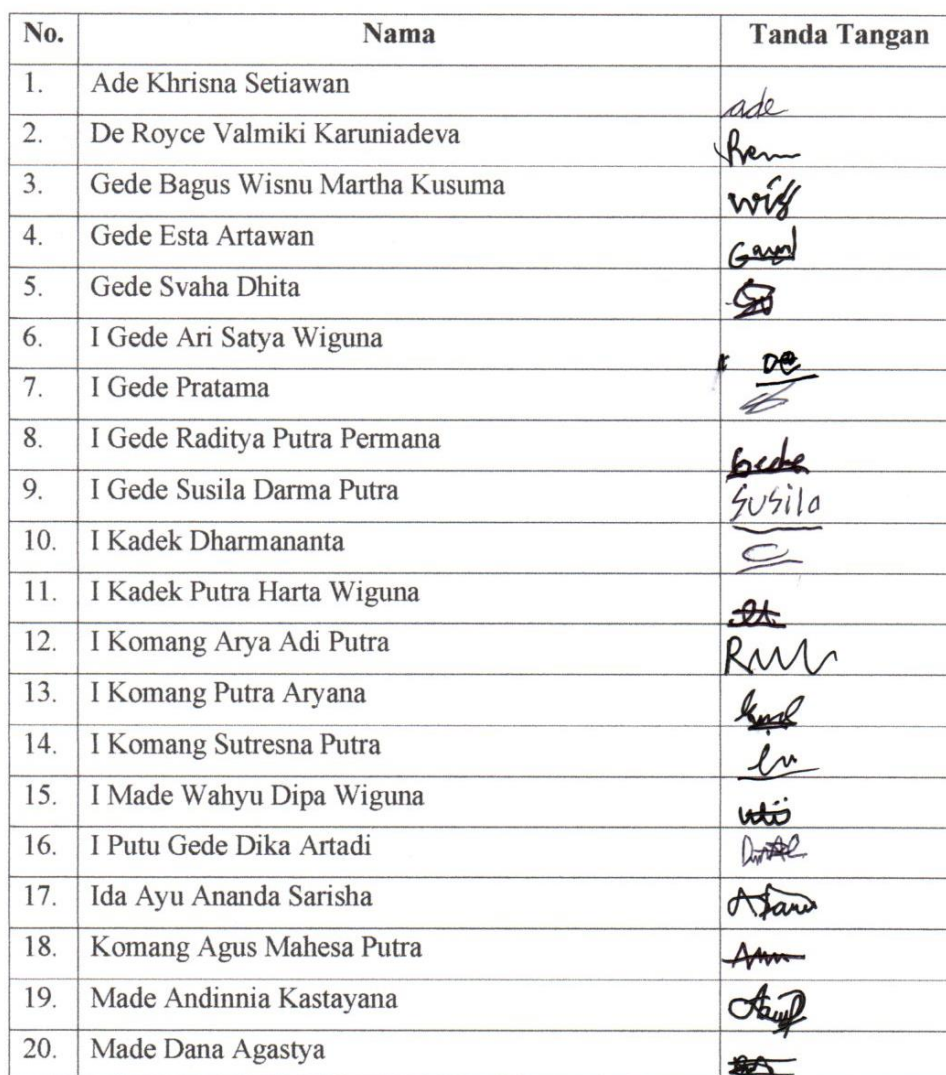 No. Nama Tanda Tangan
1. Ade Khrisna Setiawan ade
2. De Royce Valmiki Karuniadeva
3. Gede Bagus Wisnu Martha Kusuma
4. Gede Esta Artawan
5. Gede Svaha Dhita
6. I Gede Ari Satya Wiguna
7. I Gede Pratama
8. I Gede Raditya Putra Permana Gede
9. I Gede Susila Darma Putra Susila
10. I Kadek Dharmananta
11. I Kadek Putra Harta Wiguna
12. I Komang Arya Adi Putra
13. I Komang Putra Aryana
14. I Komang Sutresna Putra
15. I Made Wahyu Dipa Wiguna
16. I Putu Gede Dika Artadi
17. Ida Ayu Ananda Sarisha
18. Komang Agus Mahesa Putra
19. Made Andinnia Kastayana
20. Made Dana Agastya